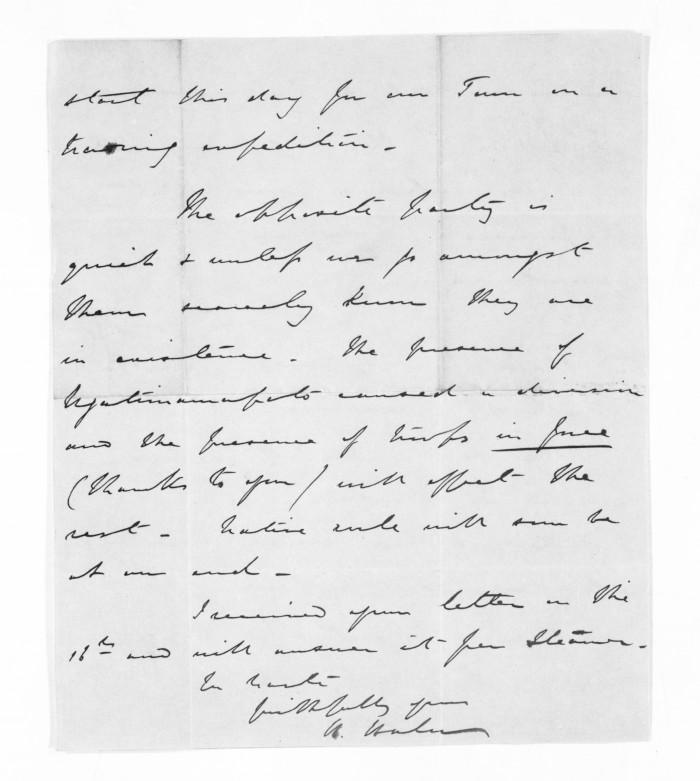 start this day for our Town on a
training expedition -
The opposite party is
quiet & unless we go amongst
them scarcely know they are
in existence - The presence of
Ngatimaniapoto caused a diversion
and the presence of troops in force
(thanks to you) will effect the
rest - Native rule will soon be
at an end -
I received your letter on the
16th and will answer it per Steamer -
In haste
faithfully yours